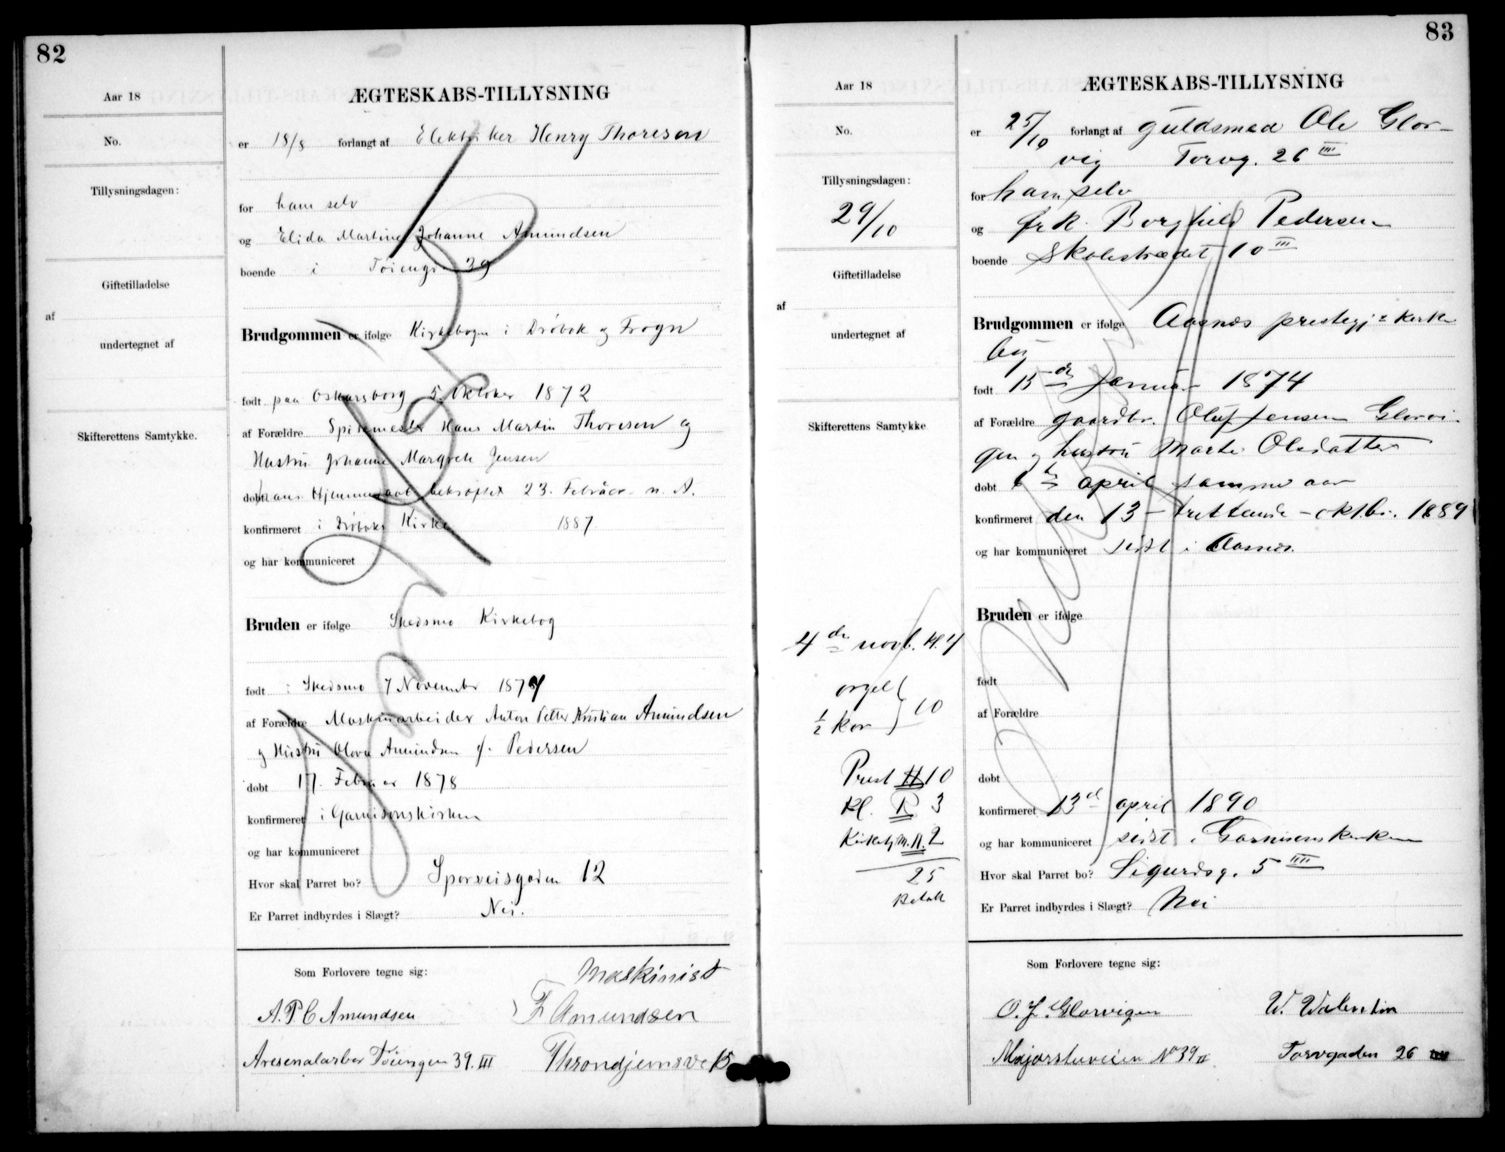 82
Aar 18
No.
Tillysningsdagen:
Giftetilladelse
af
undertegnet af
Skifterettens Samtykke.
ÆGTESKABS-TILLYSNING
er 18/8 forlangt af Elektriker Henry Thoresen
for ham selv
og Elida Martine Johanne Amundsen
boende i Töiengt 39
Brudgommen er ifølge Kirkebogen i Dröbak og Frogn
født paa Oskarsborg 5 Oktober 1872
af Forældre Hans Martin Thoresen og
Hustru Johanne Margrete Jensen
døbt Hjemmedaab bekræftet 23. Februar n. A.
konfirmeret i Dröbaks Kirke 1887
og har kommuniceret
Bruden er ifølge Skedsmo Kirkebog
født i Skedsmo 7 November 1877
af Forældre Maskinarbeider Anton Petter Kristian Amundsen
og Hustru Olava Amundsen f. Pedersen
døbt 17. Februar 1878
konfirmeret i Garnisonskirken
og har kommuniceret
Hvor skal Parret bo? Sporveisgaden 12
Er Parret indbyrdes i Slægt? Nei.
Som Forlovere tegne sig:
Maskinist
A. P. C Amundsen F Amundsen
Töiengen 39. III Throndjemsve 15
83
Aar 18
No.
Tillysningsdagen:
29/10
Giftetilladelse
af
undertegnet af
Skifterettens Samtykke
4de novb. kl. 7
orgel
½ kor } 10
Prest 10
Kl. 3
2
25
Betalt
ÆGTESKABS-TILLYSNING
er 25/10 forlangt af guldsmed Ole Glor-
vig Torvg. 26 III
for ham selv
og Frk. Borghild Pedersen
boende Skolestrædet 10 III
Brudgommen er ifølge Aasnes prestegj's kirke
bog
født 15de Januar 1874
af Forældre gaardbr. Oluf Jensen Glorvi-
gen og hustru Marte Olsdatter
døbt april samme aar
konfirmeret den 13 - trettende - oktbr. 1889
og har kommuniceret sidst i Aasnes.
Bruden er ifølge
født
af Forældre
døbt
konfirmeret 13de april 1890
og har kommuniceret sidst i Garnisonskirken
Hvor skal Parret bo? Sigurdsg. 5 III
Er Parret indbyrdes i Slægt? Nei
Som Forlovere tegne sig:
O. J. Glorvigen W. Valentin
Majorstuveien No 39 II Torvgaden 26